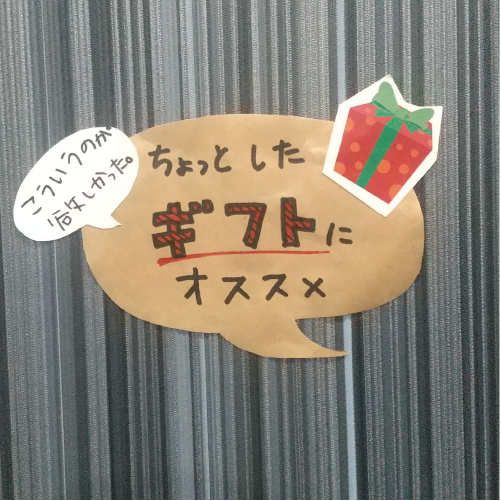 こういうのが
欲しかった。
ちょっとした
ギフトに
オススメ